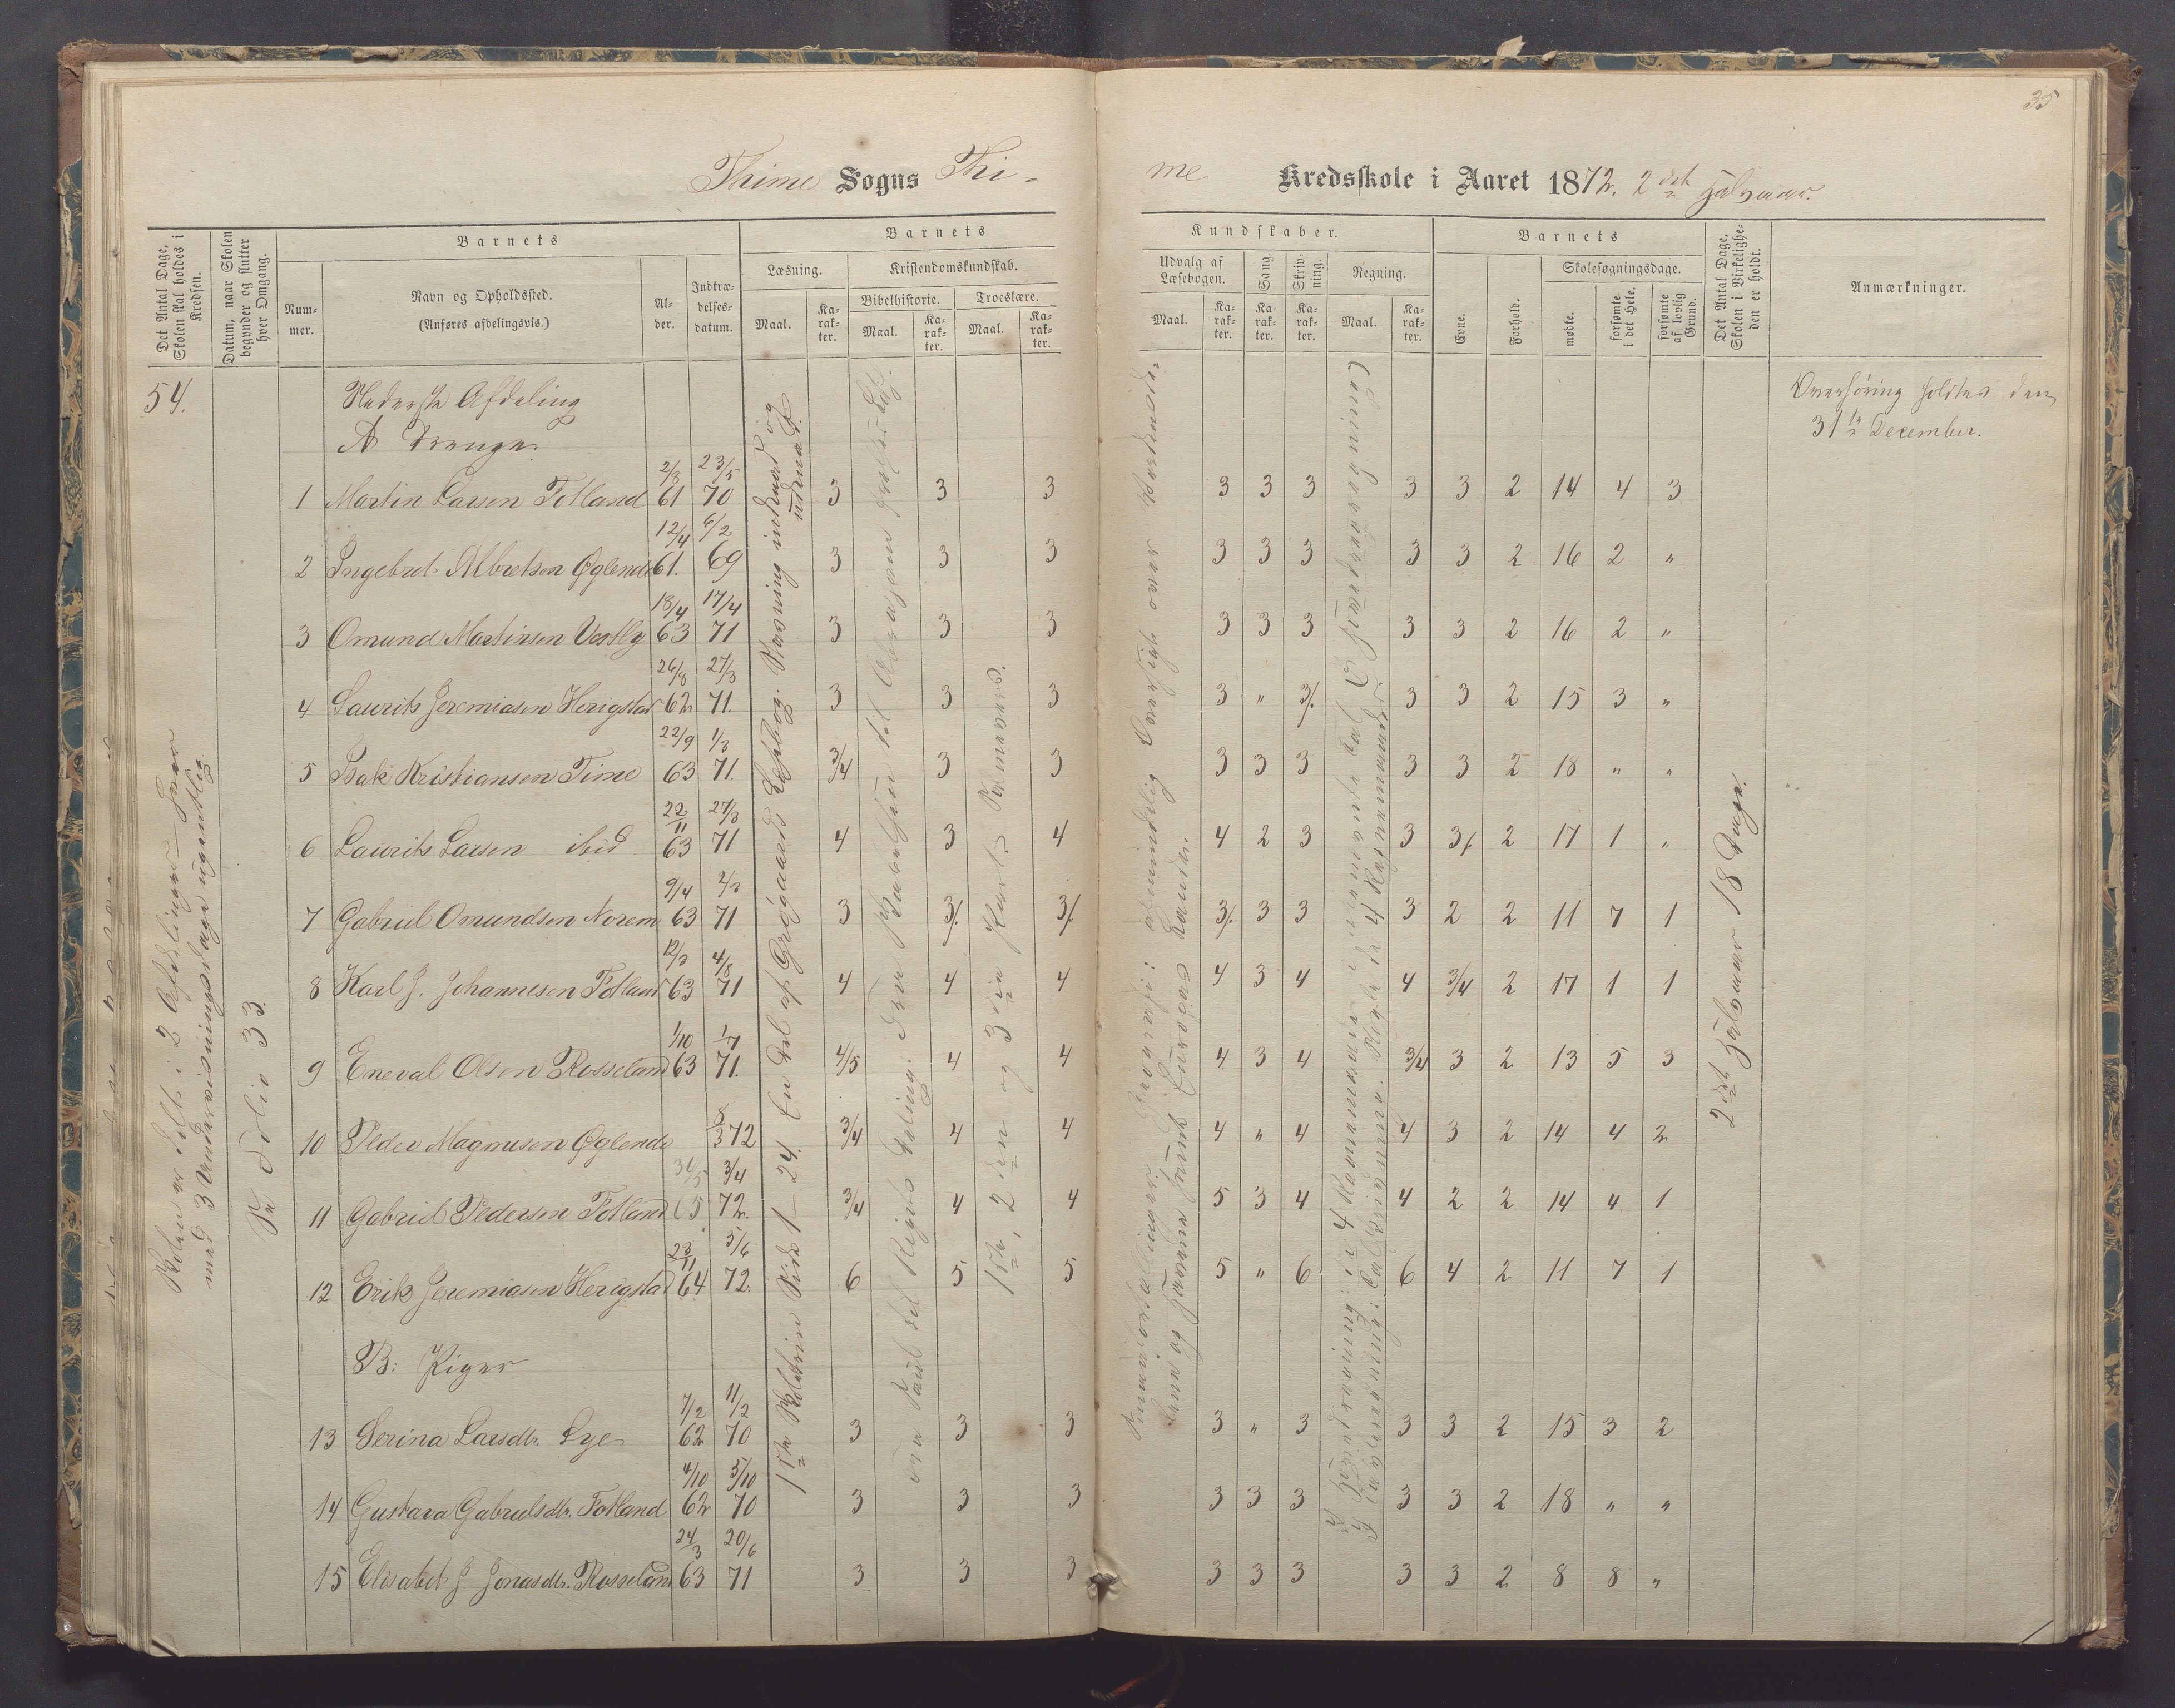 35
Thime Sogns Thi-
me Kredsskole i Aaret 1872. 2det Halvaar.
Det Antal Dage, Skolen skal holdes i Kredsen.
Datum, naar Skolen begynder og slutter hver Omgang.
Barnets
Nummer.
Navn og Opholdssted.
(Anføres afdelingsvis.)
Alder.
Indtrædelsesdatum.
Barnets
Læsning.
Kristendomskundskab.
Bibelhistorie.
Troeslære.
Maal. Karakter. Maal. Karakter. Maal. Karakter.
Kundskaber.
Udvalg af Læsebogen.
Sang.
Skrivning.
Regning.
Maal. Karakter. Karakter. Karakter. Maal. Karakter.
Barnets
Evne.
Forhold.
Skolesøgningsdage.
mødte.
forsømte i det Hele.
forsømte af lovlig Grund.
Det Antal Dage, Skolen i Virkeligheden er holdt.
Anmærkninger.
54.
Nederste Afdeling
A Drenge
Overhøring holdtes den
31te December.
1 Martin Larsen Fotland 2/8 61 23/5 70 3 3 3 3 3 3 3 3 2 14 4 3
2 Ingebret Albretsen Øglend 12/4 61. 6/2 69 3 3 3 3 3 3 3 3 2 16 2 "
3 Omund Martinsen Vestly 18/4 63 17/4 71 3 3 3 3 3 3 3 3 2 16 2 "
4 Laurits Jeremiasen Herigstad 26/8 62 27/3 71. 3 3 3 3 " 3/. 3 3 2 15 3 "
5 Isak Kristiansen Time 22/9 63 1/3 71. 3/4 3 3 3 3 3 3 3 2 18 " "
6 Laurits Larsen ibid 22/11 63 27/3 71 4 3 4 4 2 3 3 3/. 2 17 1 "
7 Gabriel Omundsen Norem 9/4 63 2/3 71 3 3/. 3/. 3/. 3 3 3 2 2 11 7 1
8 Karl J. Johannesen Fotland 12/3 63 4/8 71 4 4 4 4 3 4 4 3/4 2 17 1 1
9 Eneval Olsen Rosseland 1/10 63 1/7 71. 4/5 4 4 4 3 4 3/4 3 2 13 5 3
10 Peder Magnusen Øglend 8/3 72 3/4 4 4 4 " 4 4 3 2 14 4 2
11 Gabriel Pedersen Fotland 31/5 65 3/4 72. 3/4 4 4 5 3 4 4 2 2 14 4 1
12 Erik Jeremiasen Herigstad 23/11 64 5/6 72. 6 5 5 5 " 6 6 4 2 11 7 1
B: Piger
13 Serina Larsdtr. Lye 7/2 62 11/2 70 3 3 3 3 " 3 3 3 2 15 3 2
14 Gustava Gabrielsdtr. Fotland 4/10 62 5/10 70 3 3 3 3 3 3 3 3 2 18 " "
15 Elisabet J. Jonasdtr. Rosseland 24/3 63 20/6 71 3 3 3 3 3 3 3 3 2 8 8 "
Skolen er delt i 2 Afdelinger hver
med 3 Undervisningsdage ugentlig.
Se Folio 33.
1ste Skoletrin Side 1-24. En Del af Grøgaards Læsebog. Stavning indenad og
udenad.
1ste, 2den og 3die Part.
2det Halvaar 18 Dage.